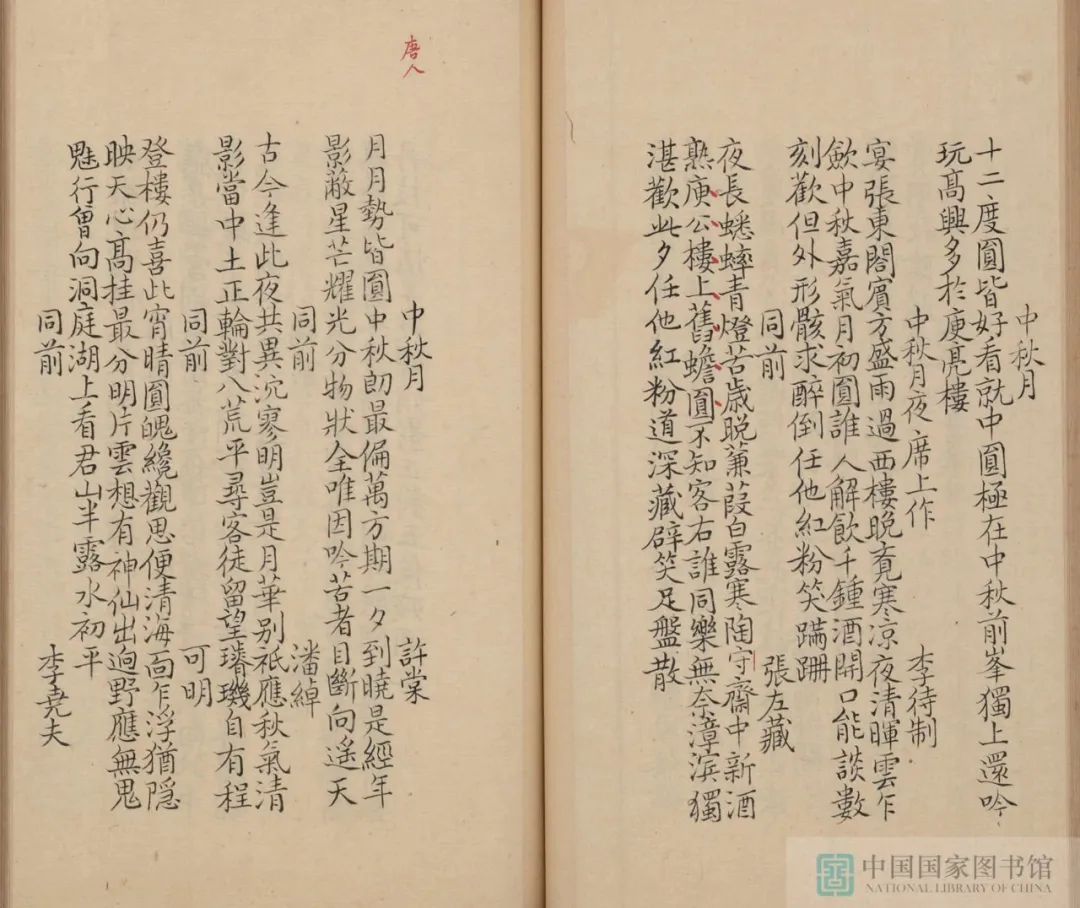 中秋月
十二度圓皆好看就中圓極在中秋前峯獨上還吟
玩高興多於庾亮樓
中秋月夜席上作
李待制
宴張東閣賓方盛雨過西樓晚竟寒涼夜清暉雲乍
斂中秋嘉氣月初圓誰人解飲千鍾酒開口能談數
刻歡但外形骸求醉倒任他紅粉笑蹣跚
同前
張左藏
夜長蟋蟀青燈苦歲晚蒹葭白露寒陶守齋中新酒
熟庾公樓上舊蟾圓不知客右誰同樂無奈漳濱獨
湛歡此夕任他紅粉道深藏辟笑足盤散
唐人
中秋月
許棠
月月勢皆圓中秋朗最偏萬方期一夕到曉是經年
影蔽星芒耀光分物狀全唯因吟苦者目斷向遙天
同前
潘緯
古今逢此夜共異沉寥明豈是月華别祇應秋氣清
影當中土正輪對八荒平尋客徒留望璿璣自有程
同前
可明
登樓仍喜此宵晴圓魄纔觀思便清海面乍浮猶隱
映天心高挂最分明片雲想有神仙出迥野應無鬼
魅行曾向洞庭湖上看君山半露水初平
同前
李堯夫
中国国家图书馆
NATIONAL LIBRARY OF CHINA